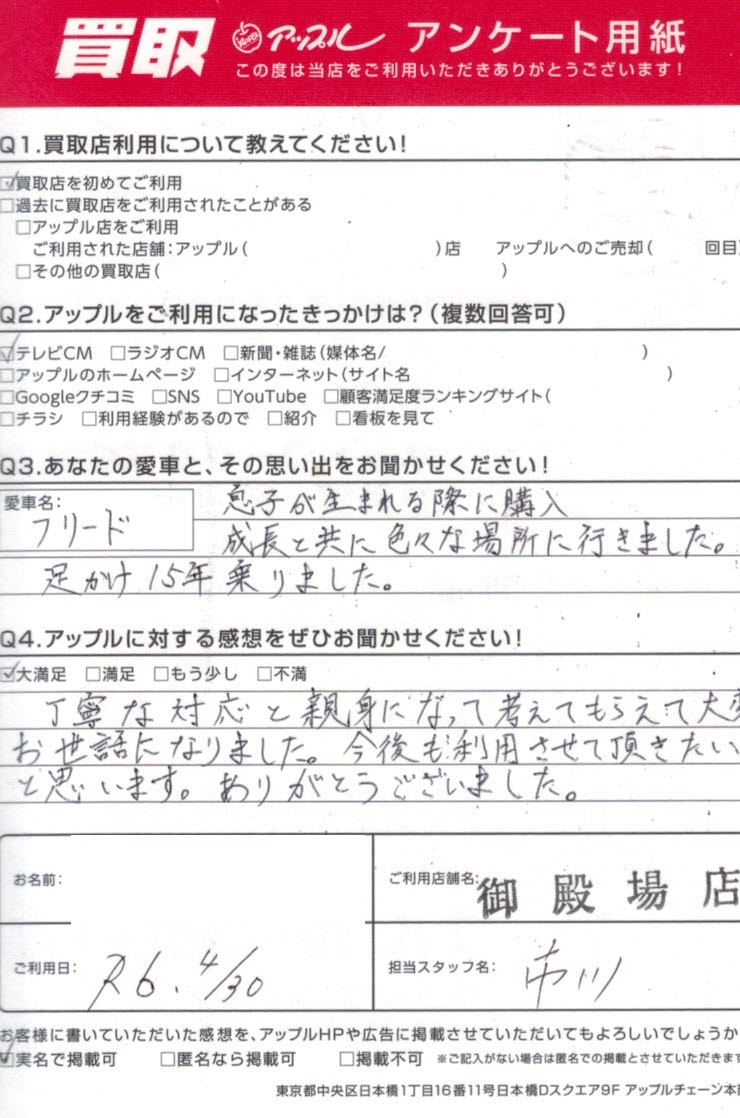 買取 アップル アンケート用紙
この度は当店をご利用いただきありがとうございます!
Q1.買取店利用について教えてください!
☑買取店を初めてご利用
□過去に買取店をご利用されたことがある
□アップル店をご利用
ご利用された店舗:アップル( )店 アップルへのご売却( 回目)
□その他の買取店( )
Q2.アップルをご利用になったきっかけは?(複数回答可)
☑テレビCM □ラジオCM □新聞・雑誌(媒体名/ )
□アップルのホームページ □インターネット(サイト名 )
□Googleクチコミ □SNS □YouTube □顧客満足度ランキングサイト(
□チラシ □利用経験があるので □紹介 □看板を見て
Q3.あなたの愛車と、その思い出をお聞かせください!
愛車名:
フリード
息子が生まれる際に購入
成長と共に色々な場所に行きました。
足かけ15年乗りました。
Q4.アップルに対する感想をぜひお聞かせください!
☑大満足 □満足 □もう少し □不満
丁寧な対応と親身になって考えてもらえて大変
お世話になりました。今後も利用させて頂きたい
と思います。ありがとうございました。
お名前:
ご利用店舗名: 御殿場店
ご利用日: R6.4/30
担当スタッフ名: 市川
お客様に書いていただいた感想を、アップルHPや広告に掲載させていただいてもよろしいでしょうか
☑実名で掲載可 □匿名なら掲載可 □掲載不可 ※ご記入がない場合は匿名での掲載とさせていただきます
東京都中央区日本橋1丁目16番11号日本橋Dスクエア9F アップルチェーン本